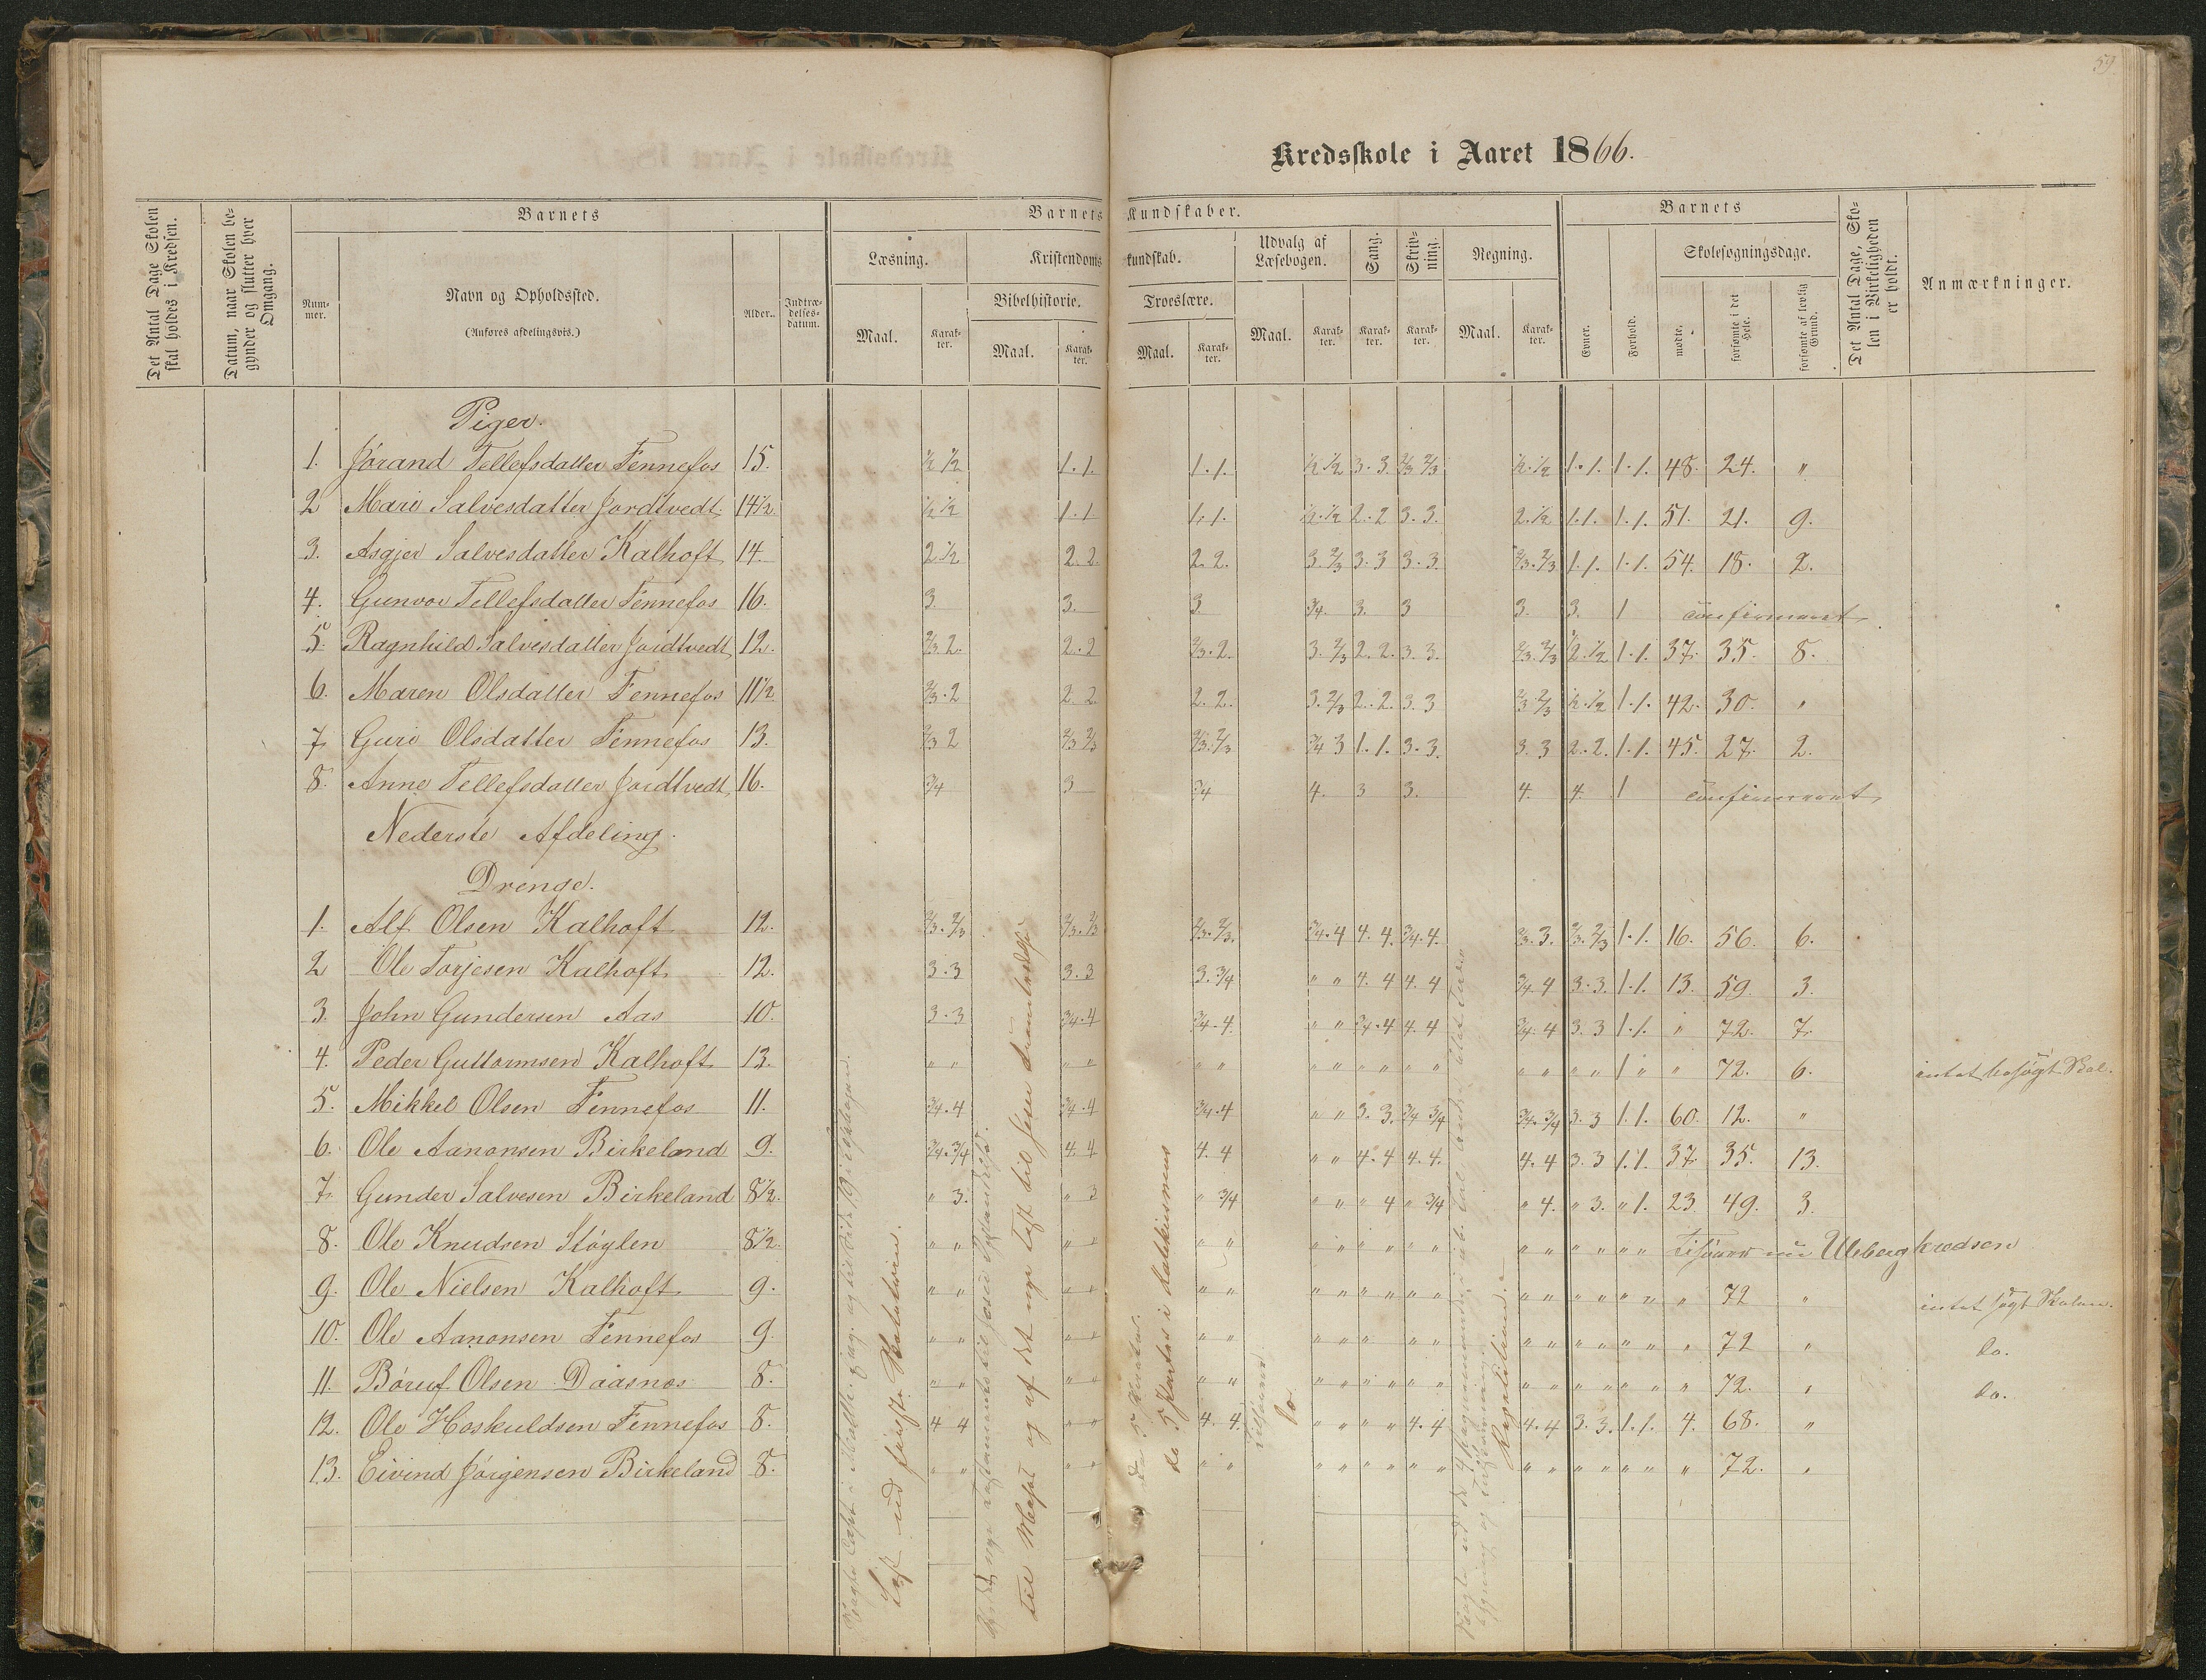 59.
Kredsskole i Aaret 1866.
Det Antal Dage Skolen skal holdes i Kredsen.
Datum, naar Skolen begynder og slutter hver Omgang.
Barnets
Num-mer.
Navn og Opholdssted.
(Anføres afdelingsvis.)
Alder.
Indtræ-delses-datum.
Barnets Kundskaber.
Læsning.
Maal. Karak-ter.
Kristendoms kundskab.
Bibelhistorie.
Maal. Karak-ter.
Troeslære.
Maal. Karak-ter.
Udvalg af Læsebogen.
Maal. Karak-ter.
Sang.
Karak-ter.
Skriv-ning.
Karak-ter.
Regning.
Maal. Karak-ter.
Barnets
Evner.
Forhold.
Skolesøgningsdage.
mødte.
forsømte i det Hele.
forsømte af lovlig Grund.
Det Antal Dage, Skolen i Virkeligheden er holdt.
Anmærkninger.
Piger.
1. Jørand Tellefsdatter Fennefos 15. ½ ½ 1. 1. 1. 1. ½ ½ 3. 3. 2/3 2/3 ½. ½ 1. 1. 1. 1. 48. 24. "
2 Mari Salvesdatter Jordtvedt. 14½. ½ ½ 1. 1. 1. 1. ½. ½ 2. 2 3. 3. 2. ½ 1. 1. 1. 1. 51. 21. 9.
3. Asgjer Salvesdatter Kalhoft 14. 2. ½ 2. 2. 2. 2. 3. 2/3 3. 3 3. 3. 2/3. 2/3 1. 1. 1. 1. 54. 18. 2.
4. Gunvor Tellefsdatter Fennefos 16. 3. 3. 3. 3/4. 3. 3 3. 3. 1 confirmeret
5. Ragnhild Salvesdatter Jordtvedt 12. 2/3. 2. 2. 2 2/3. 2. 3. 2/3 2. 2. 3. 3. 2/3. 2/3 ½. ½ 1. 1. 37. 35. 8.
6. Maren Olsdatter Fennefos 11½ 2/3. 2 2. 2. 2. 2. 3. 2/3 2. 2. 3. 3 2/3. 2/3 ½. ½ 1. 1. 42. 30. "
7. Guri Olsdatter Fennefos 13. 2/3 2 2/3 2/3 2/3. 2/3 3/4 3 1. 1. 3. 3. 3. 3 2. 2. 1. 1. 45. 27. 2.
8. Anne Tellefsdatter Jordtvedt, 16. 3/4 3 3/4 4. 3 3. 4. 4. 1 confirmeret
Nederste Afdeling.
Drenge.
1. Alf Olsen Kalhoft 12. 2/3. 2/3 2/3. 2/3 2/3. 2/3. 3/4. 4 4. 4. 3/4. 4. 2/3. 3. 2/3. 2/3 1. 1. 16. 56. 6.
2 Ole Torjesen Kalhoft 12. 3. 3 3. 3 3. 3/4 " " 4. 4 4. 4 3/4 4 3. 3. 1. 1. 13. 59. 3.
3. John Gundersen Aas 10. 3. 3 3/4. 4 3/4. 4. " " 3/4. 4 4. 4 3/4. 4 3. 3 1. 1. " 72. 7.
4. Peder Guttormsen Kalhoft 13. " " " " " " " " " " " " " " " " 1 " " 72. 6. intet besøgt Skol.
5. Mikkel Olsen Fennefos 11. 3/4. 4 3/4. 4 3/4. 4 " " 3. 3. 3/4 3/4 3/4. 3/4 3. 3 1. 1. 60. 12. "
6. Ole Aanonsen Birkeland 9. 3/4. 3/4 4. 4 4. 4 " " 4. 4 4. 4. 4. 4 3. 3 1. 1. 37. 35. 13.
7. Gunder Salvesen Birkeland 8½. " 3. " 3 " 3/4 " " " 4 " 3/4 " 4. " 3. " 1. 23. 49. 3.
8. Ole Knudsen Støylen 8½. " " " " " " " " " " " " " " " " " " Uleberg kredsen
9. Ole Nielsen Kalhoft 9. " " " " " " " " " " " " " " " " " " " 72 " intet søgt Skolen.
10. Ole Aanonsen Fennefos 9. " " " " " " " " " " " " " " " " " " 72 " do.
11. Børuf Olsen Daasnes 8. " " " " " " " " " " " " " " " " " " " 72. " do.
12. Ole Hoskuldsen Fennefos 8. 4 4 " " 4. 4. " " " " 4. 4 4. 4 3. 3. 1. 1. 4. 68. "
13. Eivind Jørgensen Birkeland 8. " " " " " " " " " " " " " " " " " " " 72. "
til
og af det nye
do 5 Parter i Katekismens
do.
Repetition.